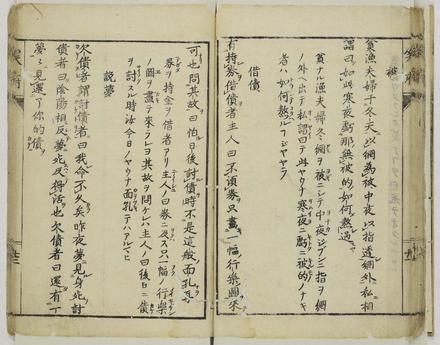 被
貧漁夫婦于冬天以網為被中夜以指透網外私相
謂曰如此寒夜虧那無被的如何熬過
貧ナル漁夫婦冬網ヲ被ニシテ中夜 指ヲ網
ノ外ヘ出テ私謂曰テ此ヤウナ寒夜ニ虧ニ被的ノナキ
者ハ如何熬ル ジヤヤラ
借債
有持券借債者主人曰不須券只畫一幅行樂圖來
可也問其故曰怕日後討債時不是這般面孔耳
券ヲ持金ヲ借者アリ主人ノ曰券ニ及ヌ只一幅ノ行樂
ノ圖ヲ畫テ來ラレヨ其故ヲ問ケレハ主人ノ曰後日ニ債
ヲ討スル時汝今日ノヤウナ面孔テハアルマヒ
説夢
欠債者謂討債者曰我命不久矣昨夜夢見身死討
債者曰陰陽相反夢死反得活也欠債者曰還有一
夢 見還了你的債